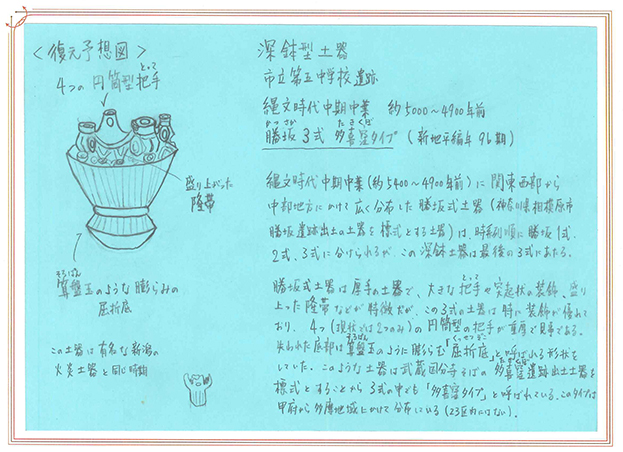 ＜復元予想図＞
とって
4つの円筒型把手
盛り上がった
隆帯
そろばん
算盤玉のような膨らみの
屈折底
この土器は有名な新潟の
火炎土器と同じ時期
深鉢型土器
市立第五中学校遺跡
縄文時代中期中葉 約5000〜4900年前
かつさか たきくぼ
勝坂3式 多喜窪タイプ (新地平編年 9b期)
縄文時代中期中葉(約5400〜4900年前)に関東西部から
中部地方にかけて広く分布した勝坂式土器(神奈川県相模原市
勝坂遺跡出土の土器を標式とする土器)は、時系列順に勝坂1式、
2式、3式に分けられるが、この深鉢土器は最後の3式にあたる。
とって
勝坂式土器は厚手の土器で、大きな把手や突起状の装飾、盛り
上った隆帯などが特徴だが、この3式の土器は特に装飾が優れて
おり、4つ(現状では2つのみ)の円筒型の把手が重厚で見事である。
そろばん くっせつてい
失われた底部は算盤玉のように膨らむ「屈折底」と呼ばれる形状を
たきくぼ
していた。このような土器は武蔵国分寺そばの多喜窪遺跡出土土器を
標式とすることから3式の中でも「多喜窪タイプ」と呼ばれている。このタイプは
甲府から多摩地域にかけて分布している(23区内にはない)。